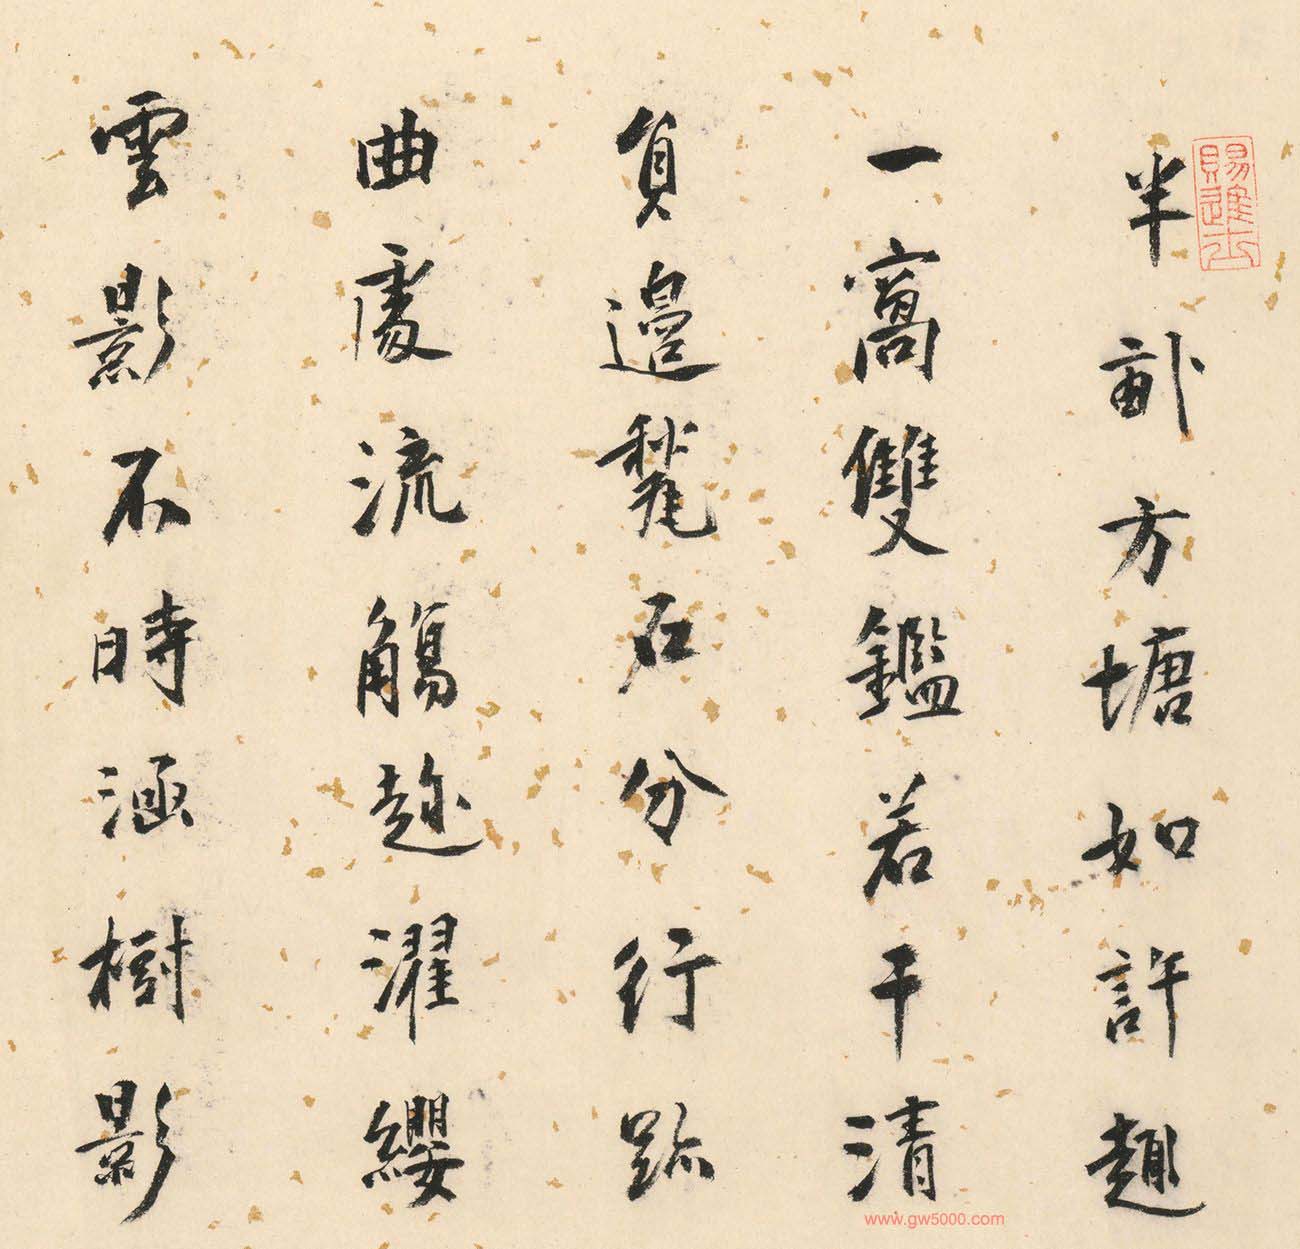 賜進士
半畝方塘如許趣
一窩雙鑑若干清
員邊甃石分行跡
曲處流觴趁濯纓
雲影不時涵樹影
www.gw5000.com